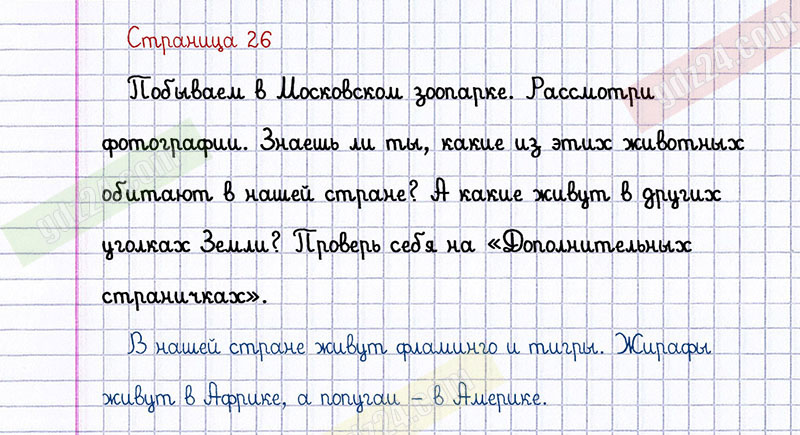 Страница 26
Побываем в Московском зоопарке. Рассмотри
фотографии. Знаешь ли ты, какие из этих животных
обитают в нашей стране? А какие живут в других
уголках Земли? Проверь себя на «Дополнительных
страничках».
В нашей стране живут фламинго и тигры. Жирафы
живут в Африке, а попугаи – в Америке.
gdz24.com
gdz24.com
gdz24.com